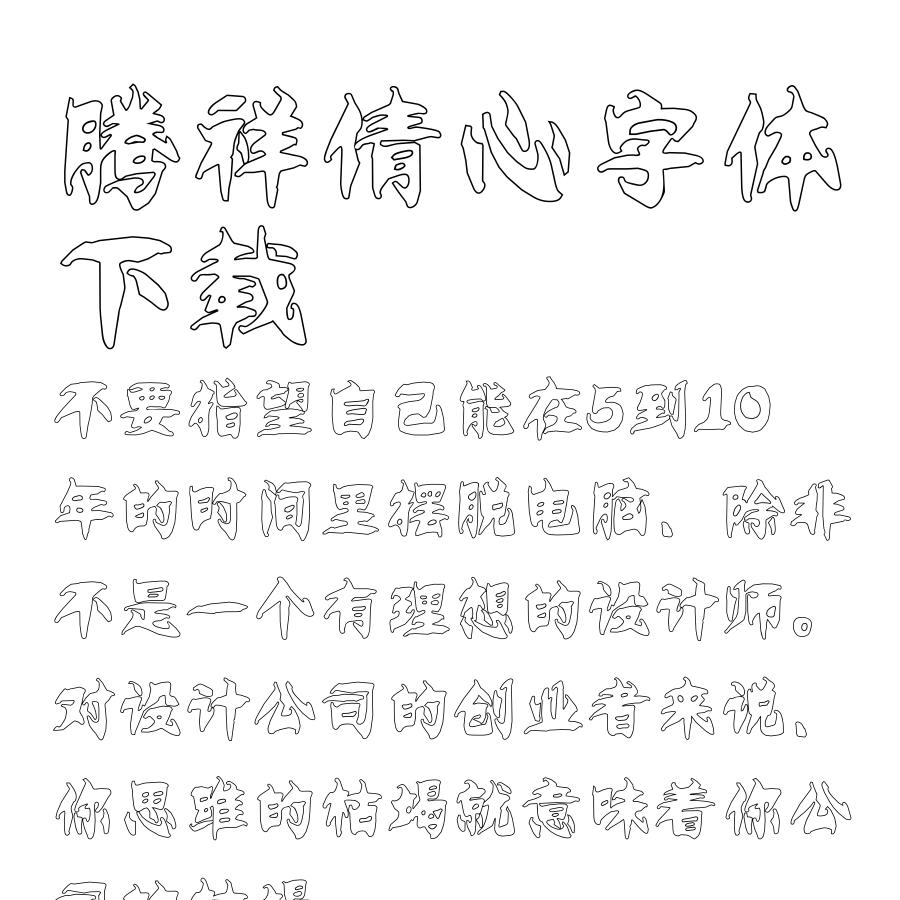 腾祥倩心字体
下载
不要指望自己能在5到10
年的时间里摆脱电脑、除非
不是一个有理想的设计师。
对设计公司的创业者来说、
你思维的枯竭就意味着你公
司的枯竭